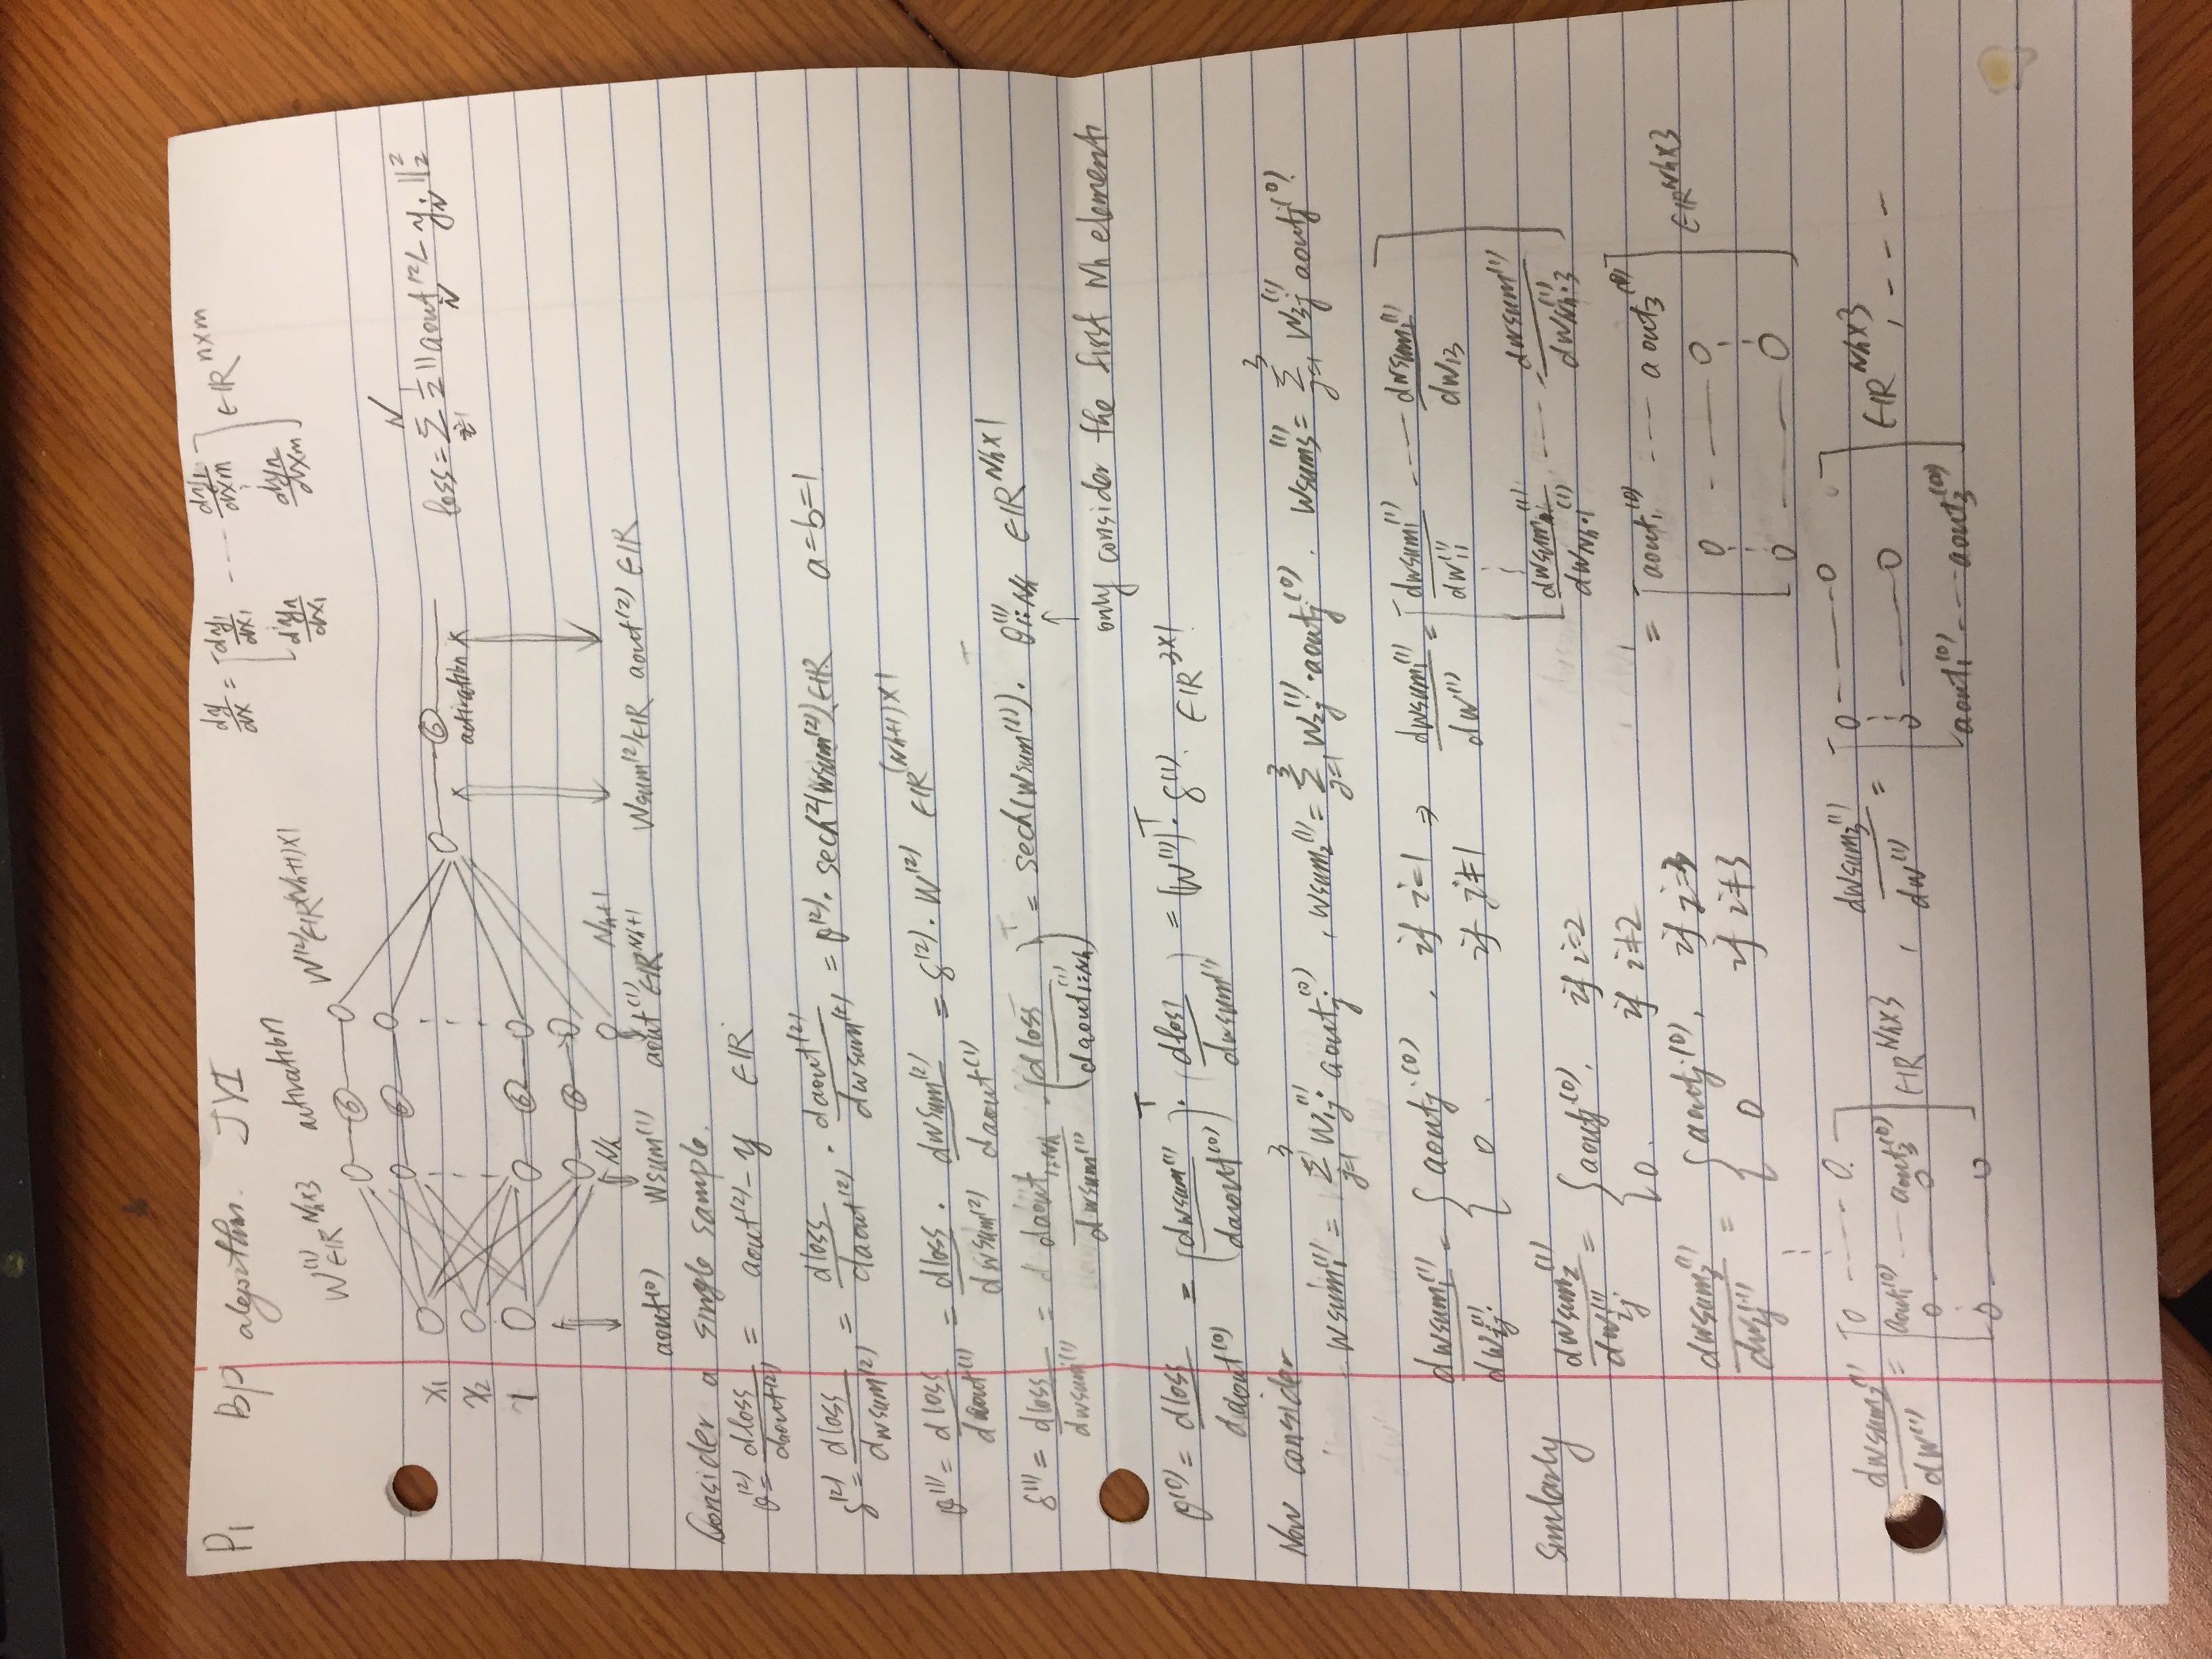 P1 BP algorithm. JYI
dy/dx = [dy1/dx1 --- dy1/dxm ; dyn/dx1 dyn/dxm] ∈ℝ^{n×m}
W^{(1)}∈ℝ^{Nh×3} activation W^{(2)}∈ℝ^{(Nh+1)×1}
x1
x2
1
activation
loss = Σ^N_{i=1} 1/2 ||aout^{(2)}_N - y_N||_2^2
Nh Nh+1
aout^{(0)} Wsum^{(1)} aout^{(1)}∈ℝ^{Nh+1} Wsum^{(2)}∈ℝ aout^{(2)} ∈ℝ
Consider a single sample.
θ^{(2)} = dloss/daout^{(2)} = aout^{(2)} - y ∈ℝ
δ^{(2)} = dloss/dwsum^{(2)} = dloss/daout^{(2)} · daout^{(2)}/dwsum^{(2)} = θ^{(2)} · sech^2(wsum^{(2)}) ∈ℝ a=b=1
θ^{(1)} = dloss/daout^{(1)} = dloss/dwsum^{(2)} · dwsum^{(2)}/daout^{(1)} = δ^{(2)} · W^{(2)} ∈ℝ^{(Nh+1)×1}
δ^{(1)} = dloss/dwsum^{(1)} = daout_{1:Nh}/dwsum^{(1)} · (dloss/daout^{(1)}_{1:Nh})^T = sech(wsum^{(1)}) · θ^{(1)}_{1:Nh} ∈ℝ^{Nh×1}
only consider the first Nh element
θ^{(0)} = dloss/daout^{(0)} = (dwsum^{(1)}/daout^{(0)})^T · (dloss/dwsum^{(1)}) = (W^{(1)})^T · δ^{(1)}. ∈ℝ^{3×1}
Now consider
wsum1^{(1)} = Σ^3_{j=1} W1j^{(1)} · aoutj^{(0)}, wsum2^{(1)} = Σ^3_{j=1} W2j^{(1)} · aoutj^{(0)}. Wsum3^{(1)} = Σ^3_{j=1} W3j^{(1)} aoutj^{(0)}.
dwsum1^{(1)}/dWij^{(1)} = { aoutj^{(0)}, if i=1 ; 0. if i≠1 ⇒ dwsum1^{(1)}/dW^{(1)} = [dwsum1^{(1)}/dW11^{(1)} --- dwsum1^{(1)}/dW13 ; dwsum^{(1)}/dWNh·1^{(1)} --- dwsum^{(1)}/dWNh·3^{(1)}]
Smlarly dwsum2^{(1)}/dWij^{(1)} = { aoutj^{(0)}. if i=2 ; 0. if i≠2
= [aout1^{(0)} --- aout3^{(0)} ; 0 --- 0 ; 0 --- 0] ∈ℝ^{Nh×3}
dwsum3^{(1)}/dWij^{(1)} = { aoutj^{(0)}, if i=3 ; 0 if i≠3
dwsum2^{(1)}/dW^{(1)} = [0 --- 0. ; aout1^{(0)} --- aout3^{(0)} ; 0 --- 0 ; 0 --- 0] ∈ℝ^{Nh×3}, dwsum3^{(1)}/dW^{(1)} = [0 --- 0 ; 0 --- 0 ; aout1^{(0)} --- aout3^{(0)}] ∈ℝ^{Nh×3}, ---